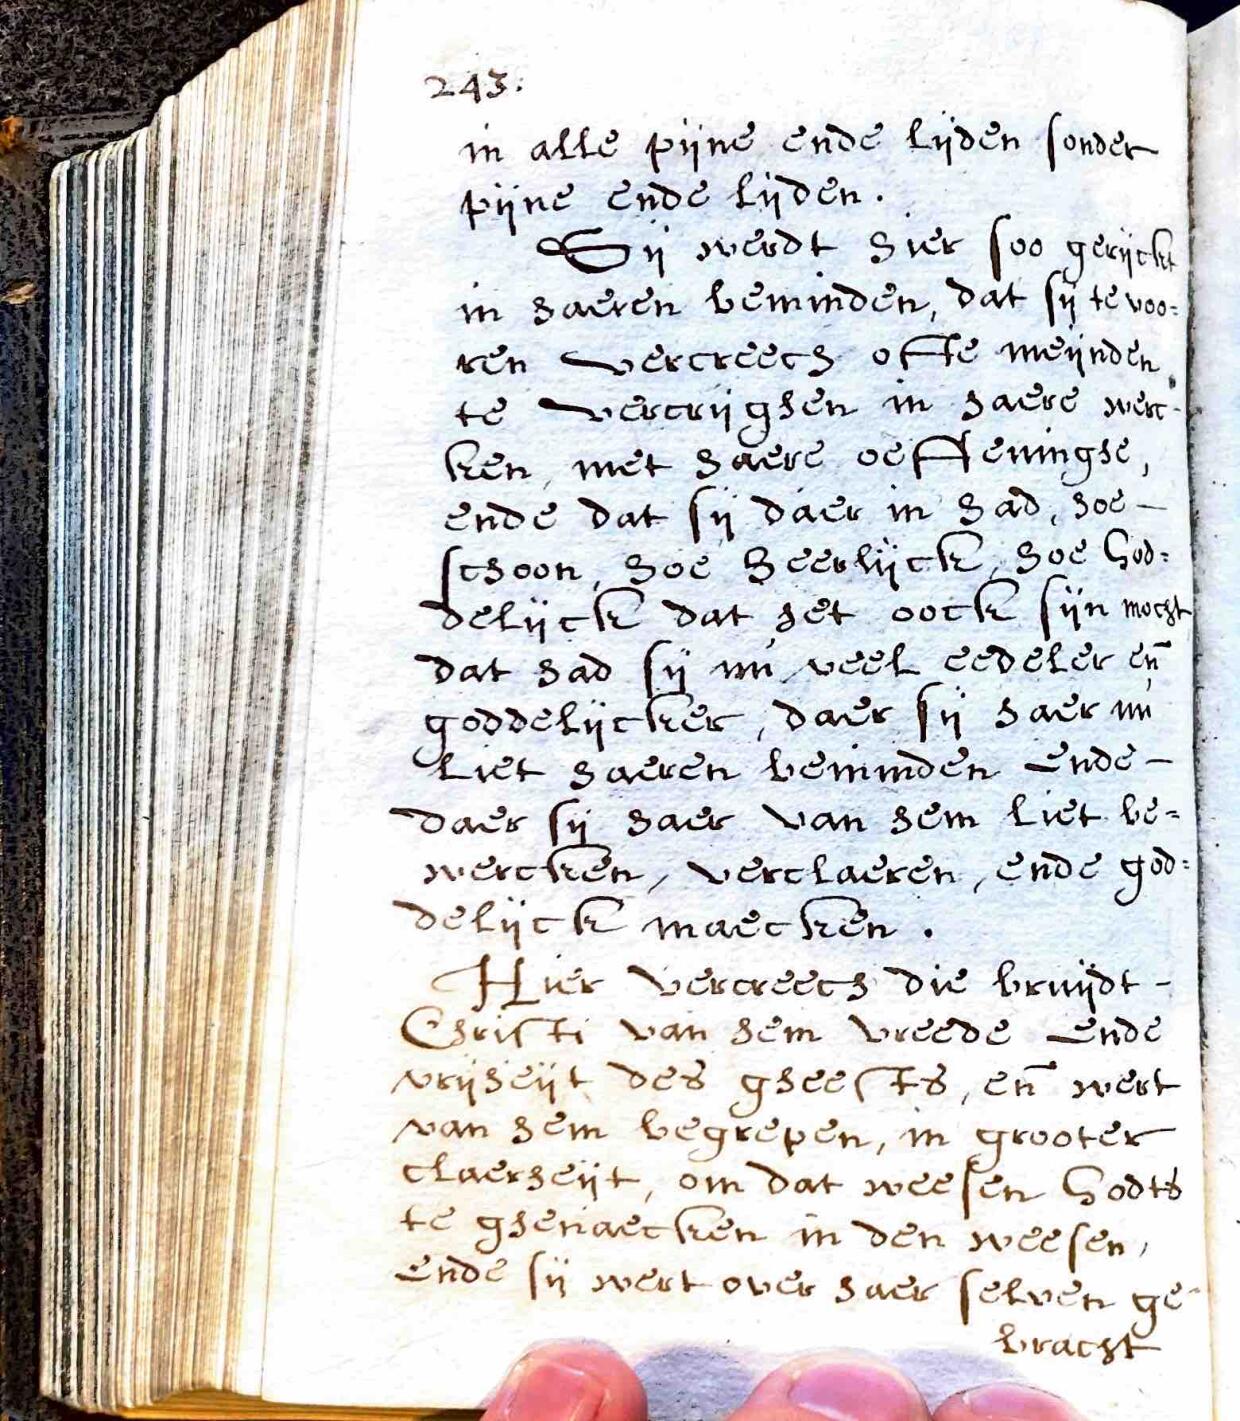 243:
in alle pijne ende lijden sonder
pijne ende lijden.
Sij werdt hier soo gerijckt
in haeren beminden, dat sij te voo=
ren vercreech ofte meijnden
te vercrijghen in haere werc-
ken, met haere oeffeninghe,
ende dat sij daer in had, hoe -
schoon, hoe heerlijck, hoe God=
delijck dat het oock sijn mocht
dat had sij nu veel eedeler en̄
goddelijcker, daer sij haer nu
liet haeren beminden ende -
daer sij haer van hem liet be=
wercken, verclaeren, ende god=
delijck maecken.
Hier vercreech die bruijdt -
Christi van hem vreede ende
vrijheijt des gheests, en̄ wert
van hem begrepen, in grooter
claerheijt, om dat weesen Godts
te ghenaecken in den weesen,
ende sij wert over haer selven ge-
bracht